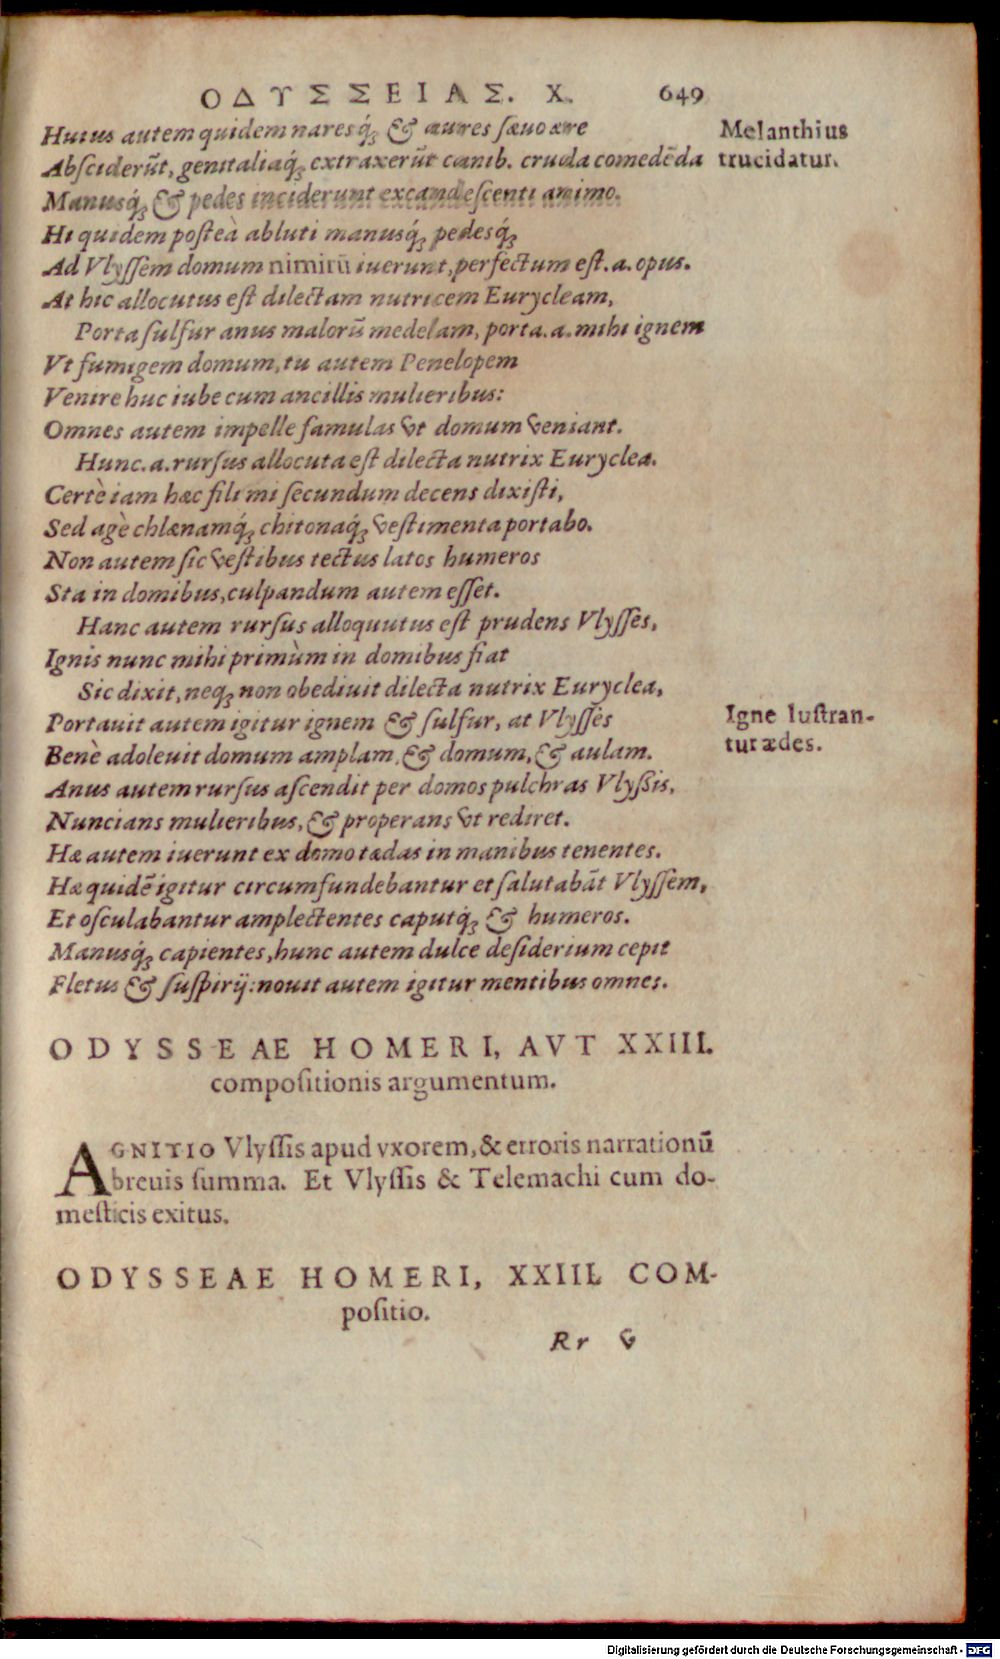 ΟΔΥΣΣΕΙΑΣ. Χ. 649
Huius autem quidem naresq́; & aures sæuo ære
Absciderũt, genitaliaq́; extraxerũt canib. cruda comedẽda
Manusq́; & pedes inciderunt excandescenti animo.
Hi quidem posteà abluti manusq́; pedesq́;
Ad Vlyssem domum nimirũ iuerunt, perfectum est. a. opus.
At hic allocutus est dilectam nutricem Eurycleam,
Porta sulfur anus malorũ medelam, porta. a. mihi ignem
Vt fumigem domum, tu autem Penelopem
Venire huc iube cum ancillis mulieribus:
Omnes autem impelle famulas vt domum veniant.
Hunc. a. rursus allocuta est dilecta nutrix Euryclea.
Certè iam hæc fili mi secundum decens dixisti,
Sed agè chlænamq́; chitonaq́; vestimenta portabo.
Non autem sic vestibus tectus latos humeros
Sta in domibus, culpandum autem esset.
Hanc autem rursus alloquutus est prudens Vlysses,
Ignis nunc mihi primùm in domibus fiat
Sic dixit, neq; non obediuit dilecta nutrix Euryclea,
Portauit autem igitur ignem & sulfur, at Vlysses
Benè adoleuit domum amplam, & domum, & aulam.
Anus autem rursus ascendit per domos pulchras Vlyssis,
Nuncians mulieribus, & properans vt rediret.
Hæ autem iuerunt ex domo tædas in manibus tenentes.
Hæ quidẽ igitur circumfundebantur et salutabãt Vlyssem,
Et osculabantur amplectentes caputq́; & humeros.
Manusq́; capientes, hunc autem dulce desiderium cepit
Fletus & suspirij: nouit autem igitur mentibus omnes.
Melanthius
trucidatur.
Igne lustran-
tur ædes.
ODYSSEAE HOMERI, AVT XXIII.
compositionis argumentum.
AGNITIO Vlyssis apud vxorem, & erroris narrationũ
breuis summa. Et Vlyssis & Telemachi cum do-
mesticis exitus.
ODYSSEAE HOMERI, XXIII. COM-
positio.
Rr v
Digitalisierung gefördert durch die Deutsche Forschungsgemeinschaft - DFG